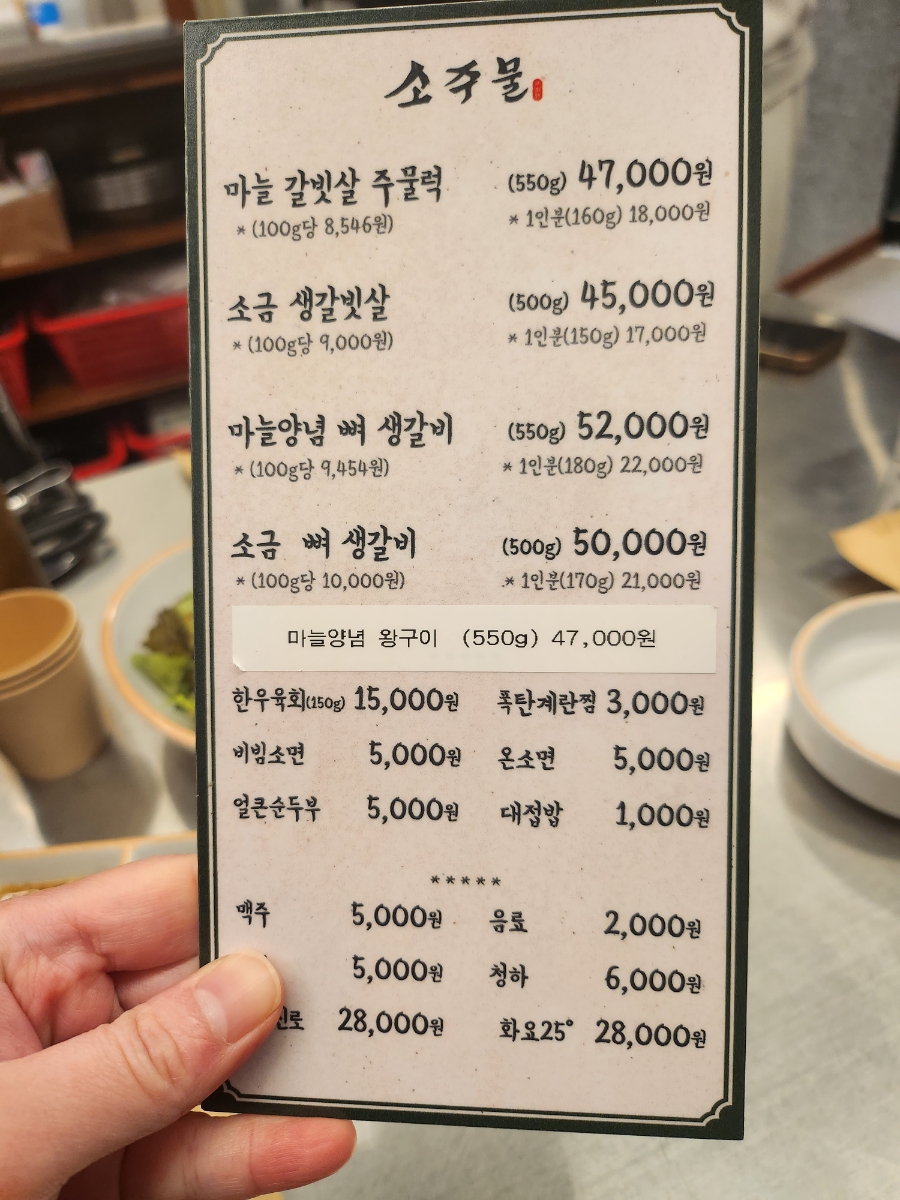 소주물
마늘 갈빗살 주물럭 (550g) 47,000원
* (100g당 8,546원) * 1인분(160g) 18,000원
소금 생갈빗살 (500g) 45,000원
* (100g당 9,000원) * 1인분(150g) 17,000원
마늘양념 뼈 생갈비 (550g) 52,000원
* (100g당 9,454원) * 1인분(180g) 22,000원
소금 뼈 생갈비 (500g) 50,000원
* (100g당 10,000원) * 1인분(170g) 21,000원
마늘양념 왕구이 (550g) 47,000원
한우육회(150g) 15,000원 폭탄계란찜 3,000원
비빔소면 5,000원 온소면 5,000원
얼큰순두부 5,000원 대접밥 1,000원
*****
맥주 5,000원 음료 2,000원
5,000원 청하 6,000원
28,000원 화요25° 28,000원